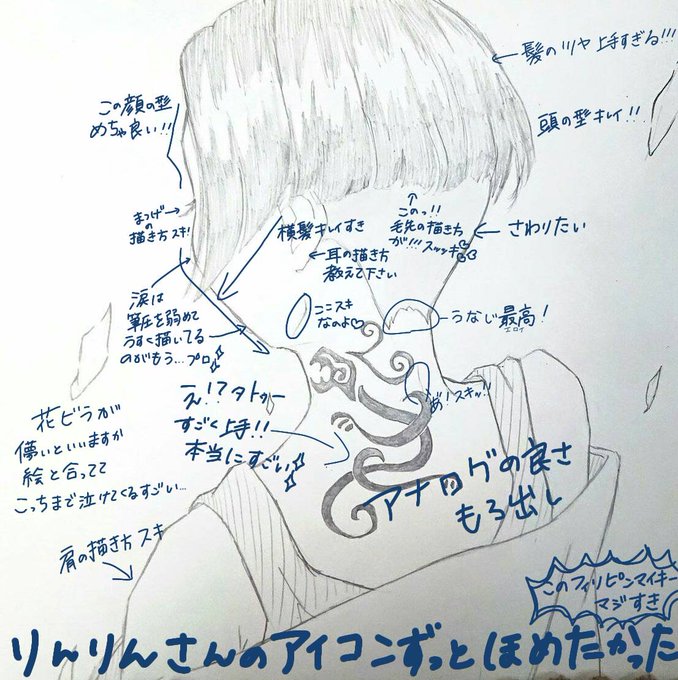 髪のツヤ上手すぎる!!!
この顔の型
めちゃ良い!!
頭の型キレイ!!
まつげ
の
描き方スキ!
横髪キレイすぎ
このっ!!
毛先の描き方
が!!!スッッキ
さわりたい
耳の描き方
教えて下さい
涙は
筆圧を弱めて
うすく描いてる
のがもう…プロ
ココスキ
なのよ♡
うなじ最高!
エロイ
え!?タトゥー
すごく上手!!
本当にすごい
め!スキッ!!
花ビラが
儚いといいますか
絵と合ってて
こっちまで泣けてくるすごい…
アナログの良さ
もろ出し
肩の描き方スキ
このフィリピンマイキー
マジすき
りんりんさんのアイコンずっとほめたかった